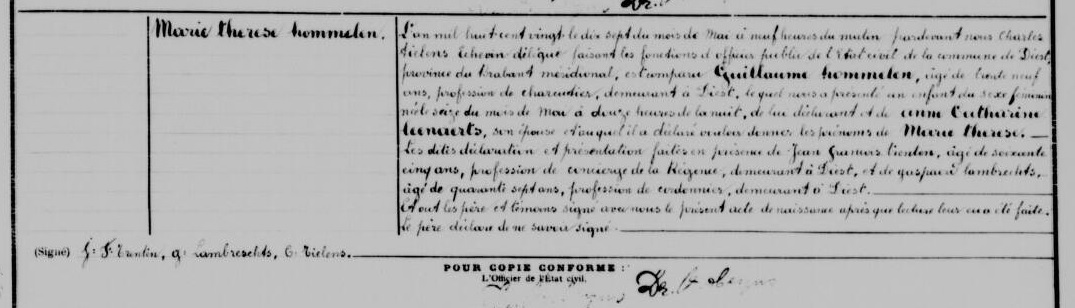 Marie therese hommelen.
L'an mil huit cent vingt le dix sept du mois de Mai à neuf heures du matin pardevant nous Charles
tielens Echevin délégué faisant les fonctions d'officier public de l'Etat civil de la commune de Diest,
province du Brabant méridional, est comparu Guillaume hommelen, âgé de trente neuf
ans, profession de demeurant à Diest, lequel nous a présenté un enfant du sexe féminin
né le seize du mois de Mai à douze heures de la nuit, de lui déclarant et de anne Catharine
Leenaerts, son épouse et auquel il a déclaré vouloir donner les prénoms de Marie therese.
Les dites déclaration et présentation faites en présence de Jean âgé de soixante
cinq ans, profession de concierge de la Régence, demeurant à Diest, et de gaspar lambrechts,
âgé de quarante sept ans, profession de cordonnier, demeurant à Diest.
Et ont les père et témoins signé avec nous le présent acte de naissance après que lecture leur en a été faite.
Le père déclare de ne savoir signé.
(Signé) J. F. g. Lambreschts, C. Tielens.
POUR COPIE CONFORME :
L'Officier de l'Etat civil.
Dr.